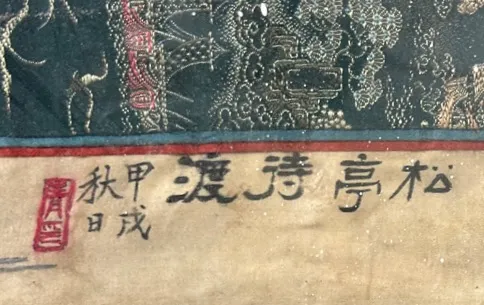 松亭待渡
甲戌
秋日